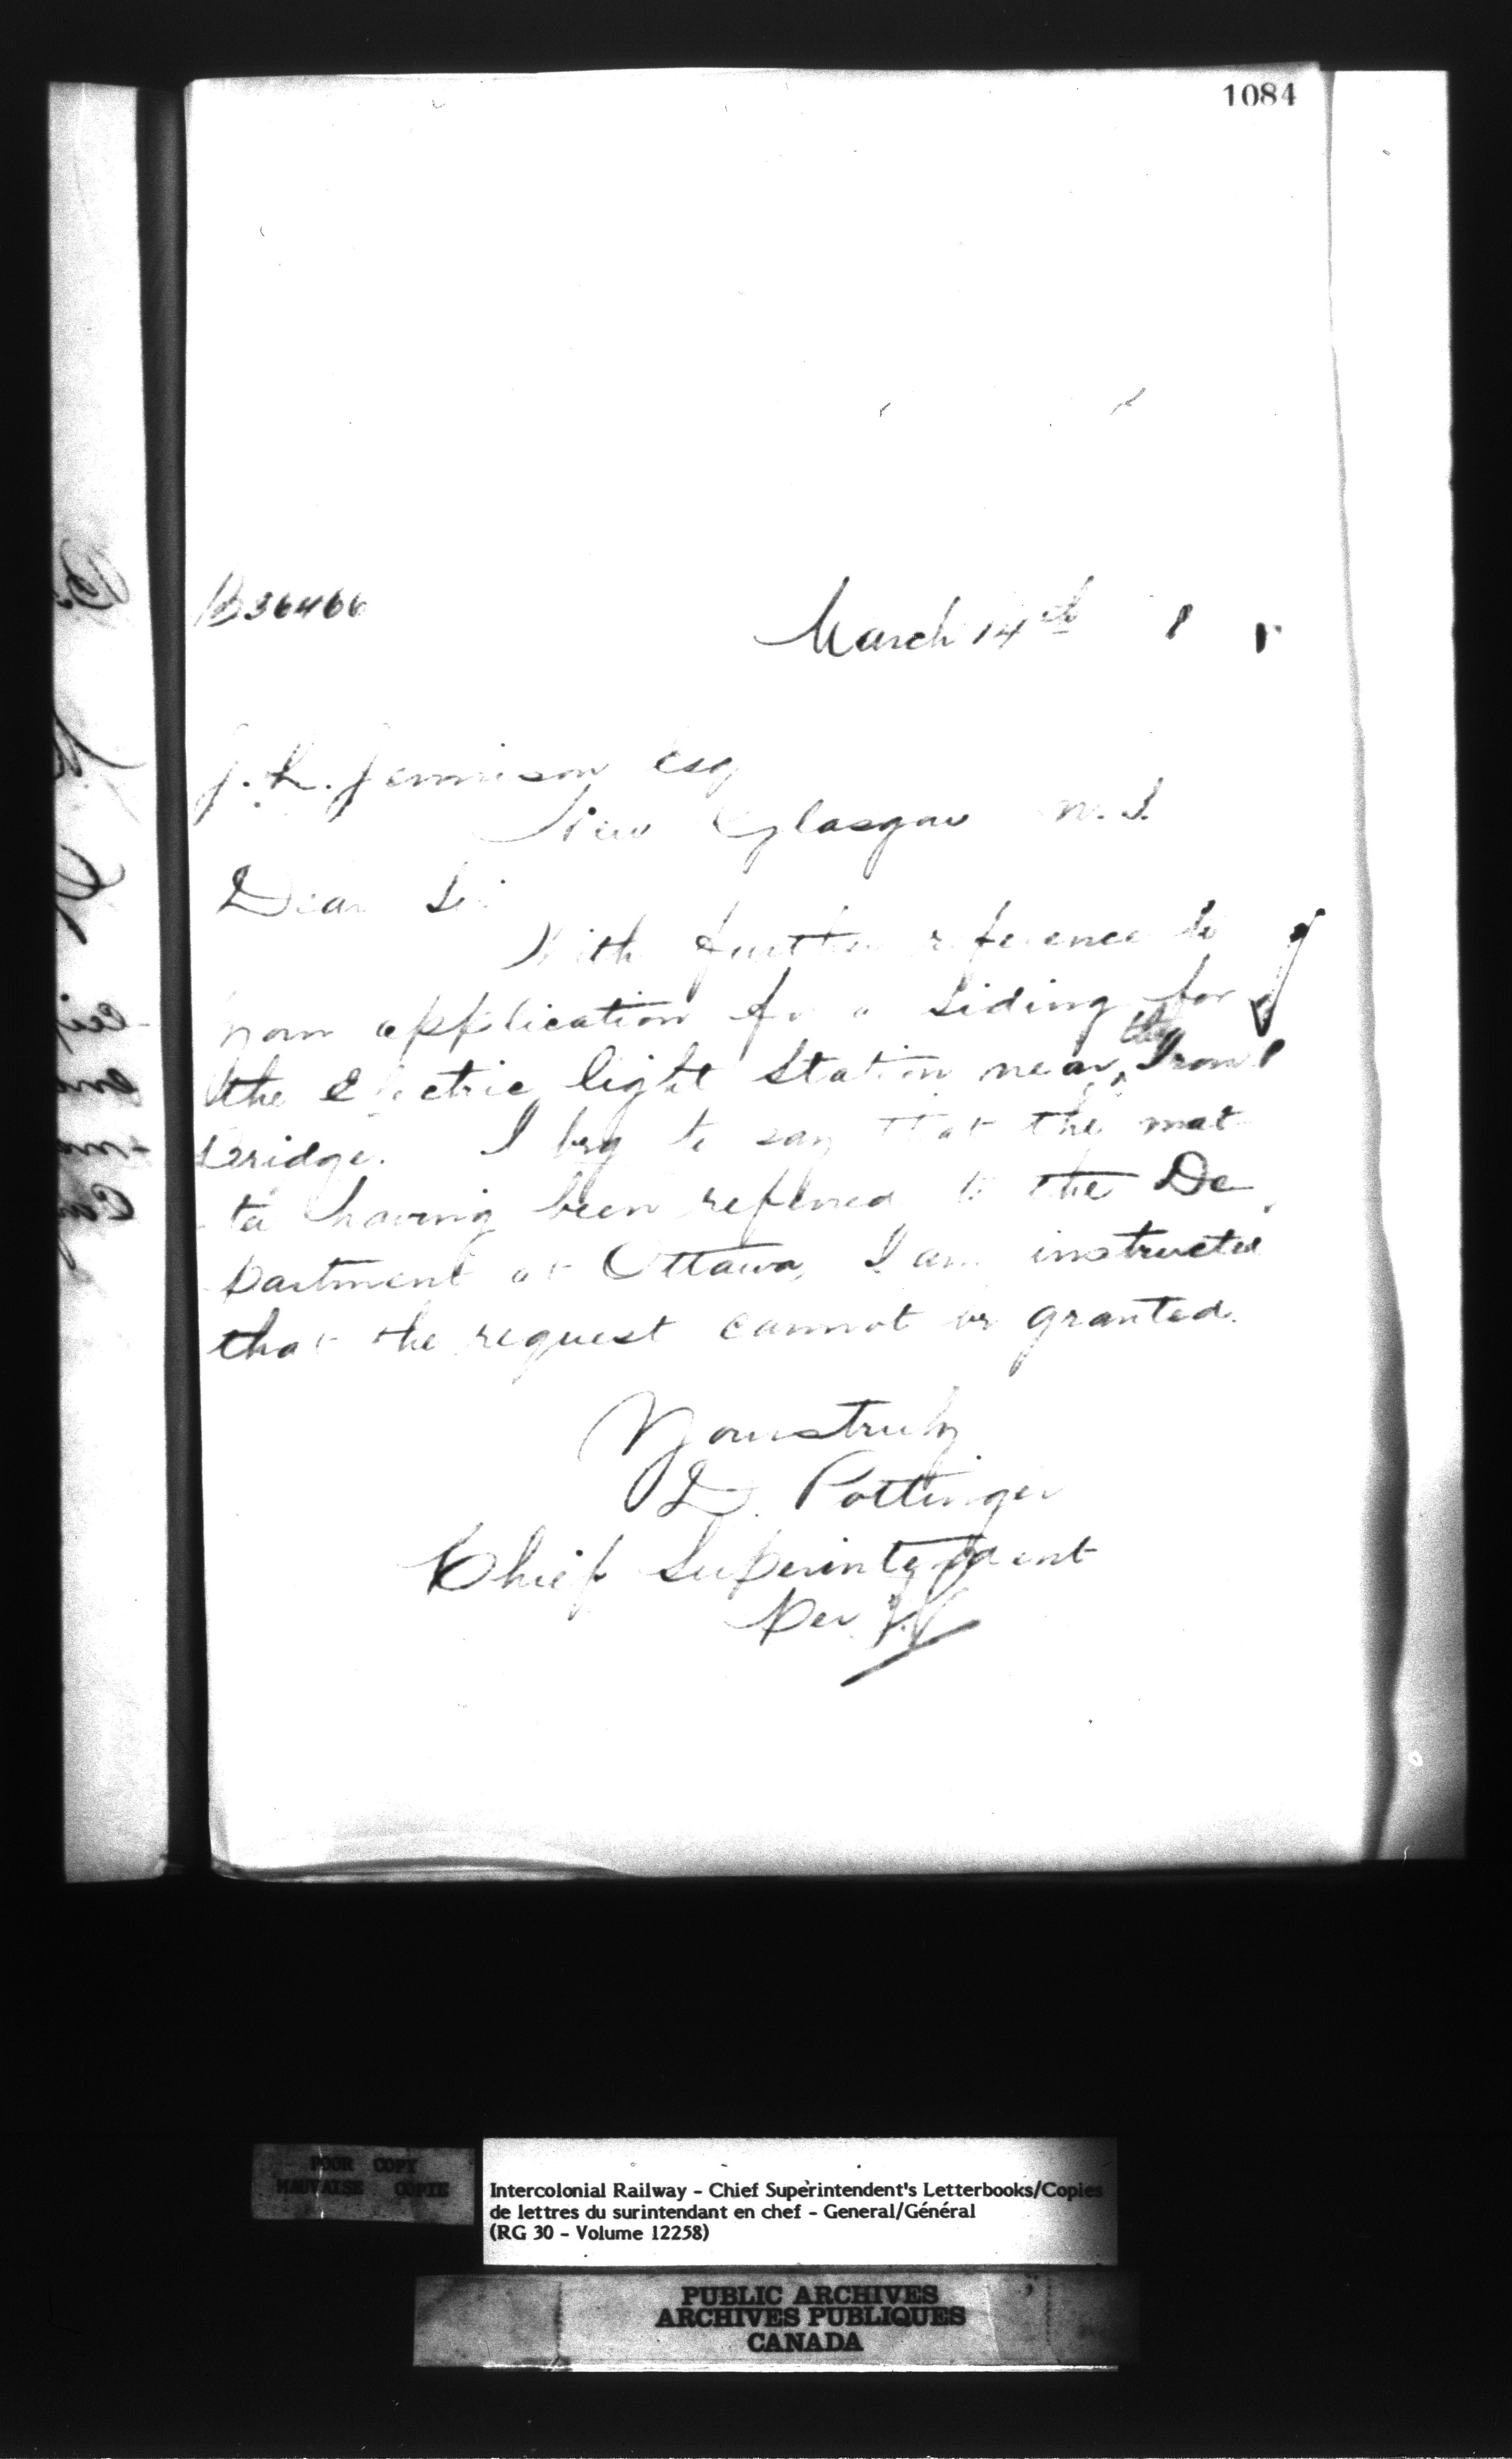 1084
B36466
March 14th
J. H. Jennison Esq
New Glasgow N.S.
Dear Sir
With further reference to
your application for a siding for
the Electric light Station near the Iron
Bridge. I beg to say that the mat
ter having been referred to the De
partment at Ottawa, I am instructed
that the request cannot be granted.
Yours truly
D. Pottinger
Chief Superintendent
Per
POOR COPY
MAUVAISE COPIE
Intercolonial Railway - Chief Superintendent's Letterbooks/Copies
de lettres du surintendant en chef - General/Général
(RG 30 - Volume 12258)
PUBLIC ARCHIVES
ARCHIVES PUBLIQUES
CANADA